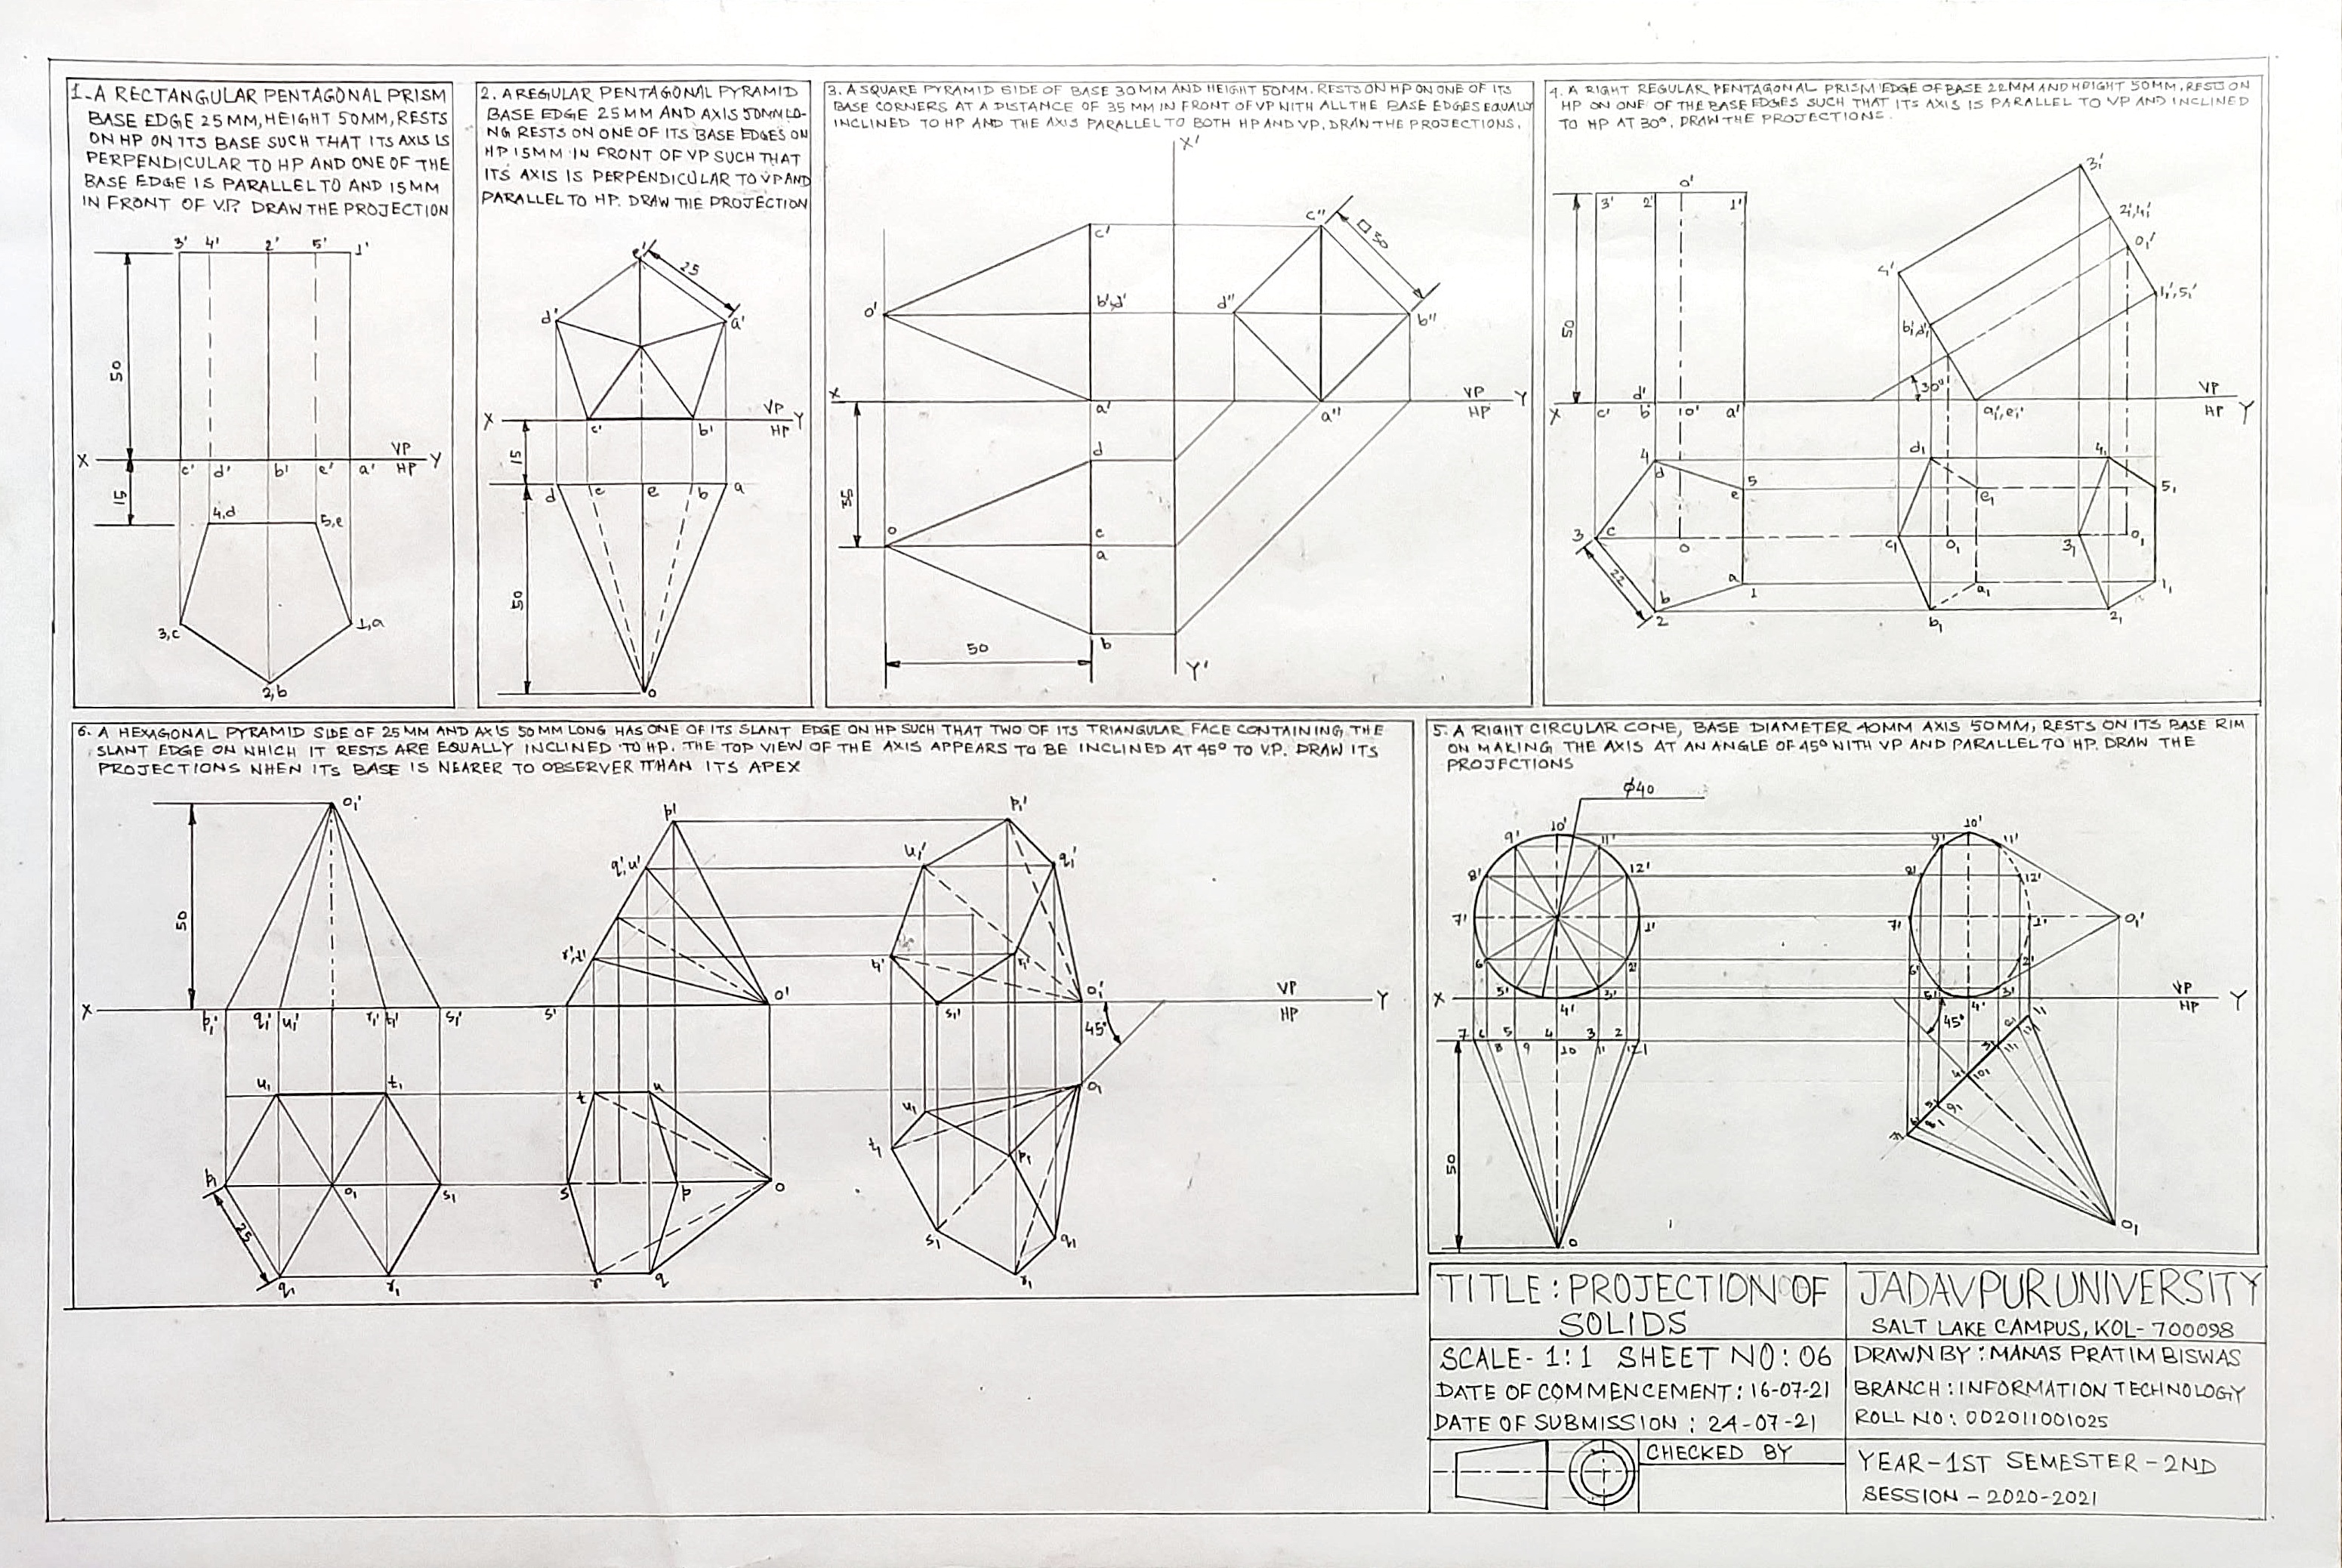 1. A RECTANGULAR PENTAGONAL PRISM
BASE EDGE 25MM, HEIGHT 50MM, RESTS
ON HP ON ITS BASE SUCH THAT ITS AXIS IS
PERPENDICULAR TO HP AND ONE OF THE
BASE EDGE IS PARALLEL TO AND 15MM
IN FRONT OF V.P. DRAW THE PROJECTION
3' 4' 2' 5' 1'
50
X VP Y
c' d' b' e' a' HP
15
4,d 5,e
3,c 1,a
2,b
2. A REGULAR PENTAGONAL PYRAMID
BASE EDGE 25MM AND AXIS 50MM LO-
NG RESTS ON ONE OF ITS BASE EDGES ON
HP 15MM IN FRONT OF VP SUCH THAT
ITS AXIS IS PERPENDICULAR TO VP AND
PARALLEL TO HP. DRAW THE PROJECTION
e' 25
d' a'
X VP Y
c' b' HP
15
d c e b a
50
o
3. A SQUARE PYRAMID SIDE OF BASE 30MM AND HEIGHT 50MM. RESTS ON HP ON ONE OF ITS
BASE CORNERS AT A DISTANCE OF 35 MM IN FRONT OF VP WITH ALL THE BASE EDGES EQUALLY
INCLINED TO HP AND THE AXIS PARALLEL TO BOTH HP AND VP. DRAW THE PROJECTIONS.
X'
c' c" □30
o' b',d' d" b"
X VP Y
a' a" HP
d
35
o c
a
50 b
Y'
4. A RIGHT REGULAR PENTAGONAL PRISM EDGE OF BASE 22MM AND HEIGHT 50MM, RESTS ON
HP ON ONE OF THE BASE EDGES SUCH THAT ITS AXIS IS PARALLEL TO VP AND INCLINED
TO HP AT 30°. DRAW THE PROJECTIONS.
o' 3₁'
3' 2' 1' 2₁',4₁'
o₁'
4' 1₁',5₁'
50 b₁'d₁'
30°
d' VP
X c' b' o' a' a₁',e₁' HP Y
4 d d₁ 4₁
5 e e₁ 5₁
3 c o c₁ o₁ 3₁ o₁
22 a 1 a₁ 1₁
b 2 b₁ 2₁
6. A HEXAGONAL PYRAMID SIDE OF 25 MM AND AXIS 50 MM LONG HAS ONE OF ITS SLANT EDGE ON HP SUCH THAT TWO OF ITS TRIANGULAR FACE CONTAINING THE
SLANT EDGE ON WHICH IT RESTS ARE EQUALLY INCLINED TO HP. THE TOP VIEW OF THE AXIS APPEARS TO BE INCLINED AT 45° TO V.P. DRAW ITS
PROJECTIONS WHEN ITS BASE IS NEARER TO OBSERVER THAN ITS APEX
o₁' p' p₁'
q',u' u₁' q₁'
50
r',t' t₁' r₁'
X s' o' s₁' o₁' VP Y
p₁' q₁' u₁' r₁' t₁' s₁' HP
45°
u₁ t₁ t u o₁
u₁
t₁ p₁
p₁ o₁ s₁ s p o
25 s₁ q₁
q₁ r₁ r q r₁
5. A RIGHT CIRCULAR CONE, BASE DIAMETER 40MM AXIS 50MM, RESTS ON ITS BASE RIM
ON MAKING THE AXIS AT AN ANGLE OF 45° WITH VP AND PARALLEL TO HP. DRAW THE
PROJECTIONS
ϕ40
9' 10' 11' 9' 10' 11'
8' 12' 8' 12'
7' 1' 7' 1' o₁'
6' 2' 6' 2'
5' 4' 3' 5' 4' 3'
X VP Y
HP
45°
7 6 5 4 3 2
8 9 10 11 12 1
50
o o₁
TITLE: PROJECTION OF
SOLIDS
JADAVPUR UNIVERSITY
SALT LAKE CAMPUS, KOL-700098
SCALE- 1:1 SHEET NO: 06
DATE OF COMMENCEMENT: 16-07-21
DATE OF SUBMISSION: 24-07-21
DRAWN BY: MANAS PRATIM BISWAS
BRANCH: INFORMATION TECHNOLOGY
ROLL NO: 002011001025
CHECKED BY
YEAR-1ST SEMESTER-2ND
SESSION - 2020-2021